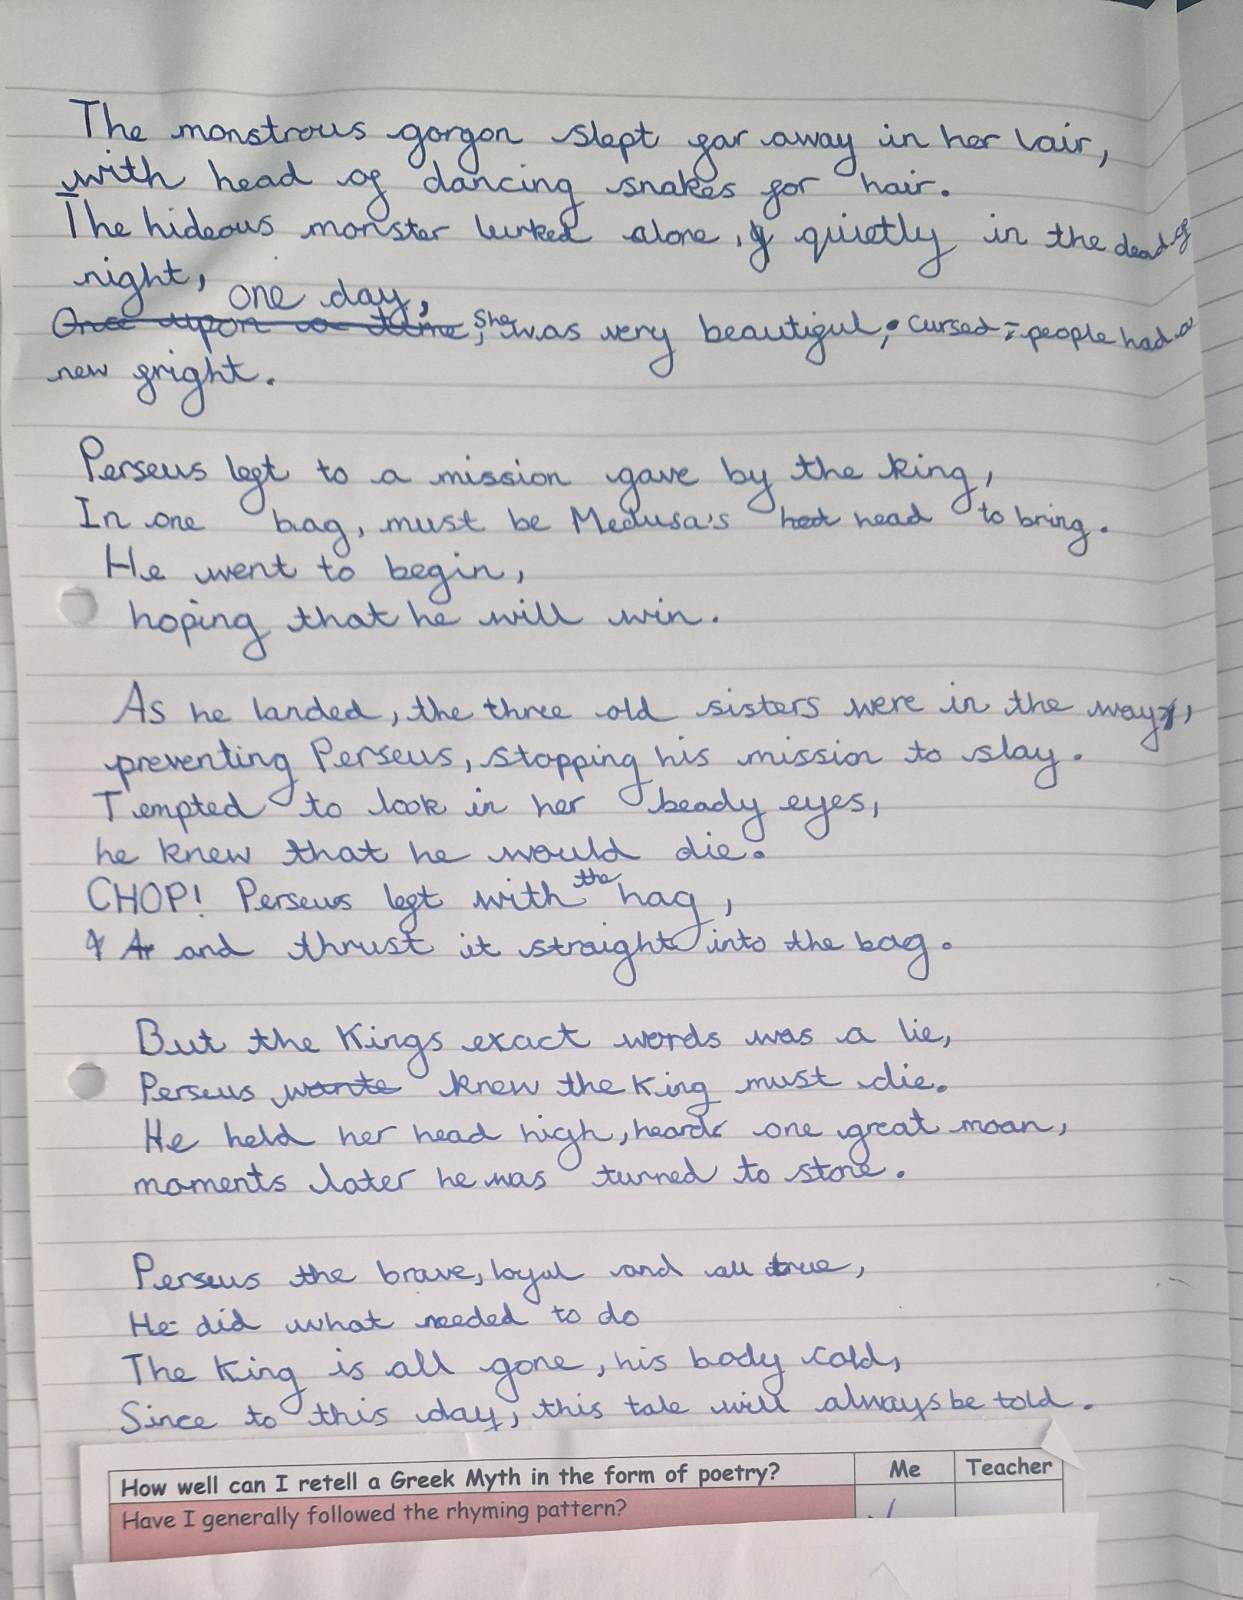 The monstrous gorgon slept far away in her lair,
with head of dancing snakes for hair.
The hideous monster lurked alone, quietly in the dead of
night, one day,
Once upon a time, She was very beautiful, cursed; people had a
new fright.
Perseus left to a mission gave by the king,
In one bag, must be Medusa's head to bring.
He went to begin,
hoping that he will win.
As he landed, the three old sisters were in the way,
preventing Perseus, stopping his mission to slay.
Tempted to look in her beady eyes,
he knew that he would die.
CHOP! Perseus left with the hag,
and thrust it straight into the bag.
But the Kings exact words was a lie,
Perseus wante knew the King must die.
He held her head high, heard one great moan,
moments later he was turned to stone.
Perseus the brave, loyal and all true,
He did what needed to do
The King is all gone, his body cold,
Since to this day, this tale will always be told.
How well can I retell a Greek Myth in the form of poetry? Me Teacher
Have I generally followed the rhyming pattern?